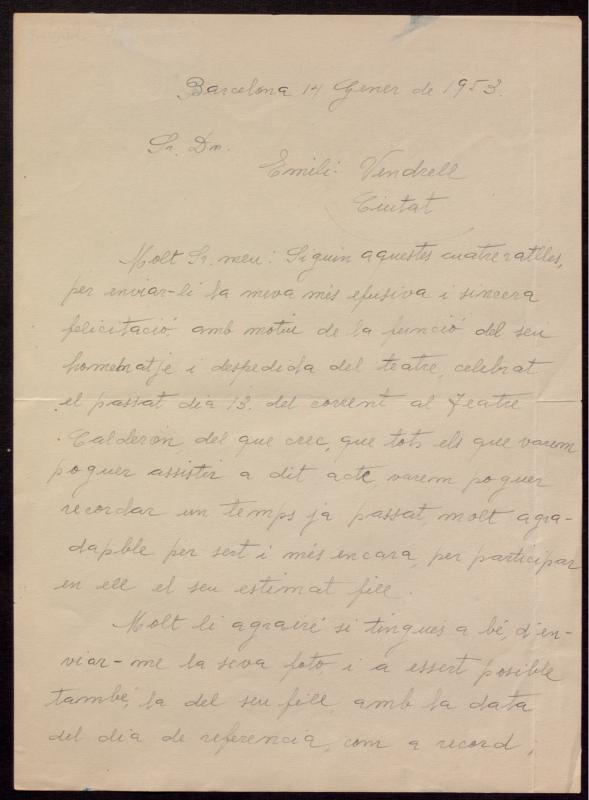 Barcelona 14 Gener de 1953.
Sr. Dn.
Emili Vendrell
Ciutat
Molt Sr. meu: Siguin aquestes cuatre ratlles,
per enviar-li la meva més efusiva i sincera
felicitació, amb motiu de la funció del seu
homenatje i despedida del teatre, celebrat
el passat dia 13. del corrent al Teatre
Calderón, del que crec, que tots els que varem
poguer assistir a dit acte, varem poguer
recordar un temps ja passat, molt agra-
dapble per sert i més encara, per participar
en ell el seu estimat fill.
Molt li agrairé si tingues a bé, d'en-
viar-me la seva foto, i a essert posible
també, la del seu fill, amb la data
del dia de referencia, com a record;